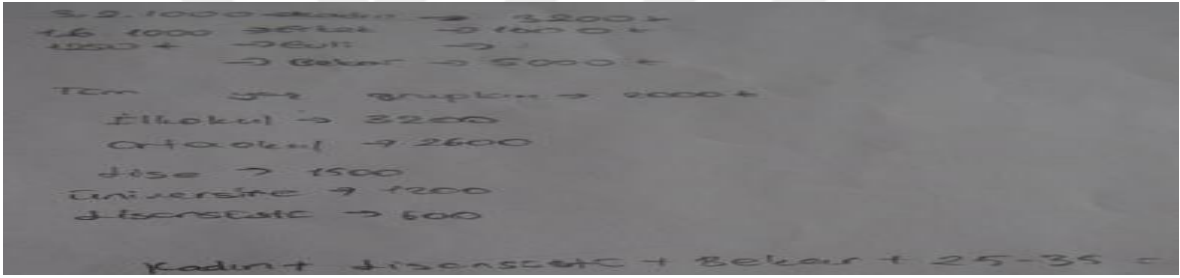 3.2.1000 → kadın → 3200 t
1.6 1000 → Erkek → 1600 t
→ Evli →
→ Bekar → 5000 t
Tüm yaş grupları → 2000 t
İlkokul → 3200
Ortaokul → 2600
Lise → 1500
Üniversite → 1200
Lisansüstü → 500
Kadın + Lisansüstü + Bekar + 25-35 =